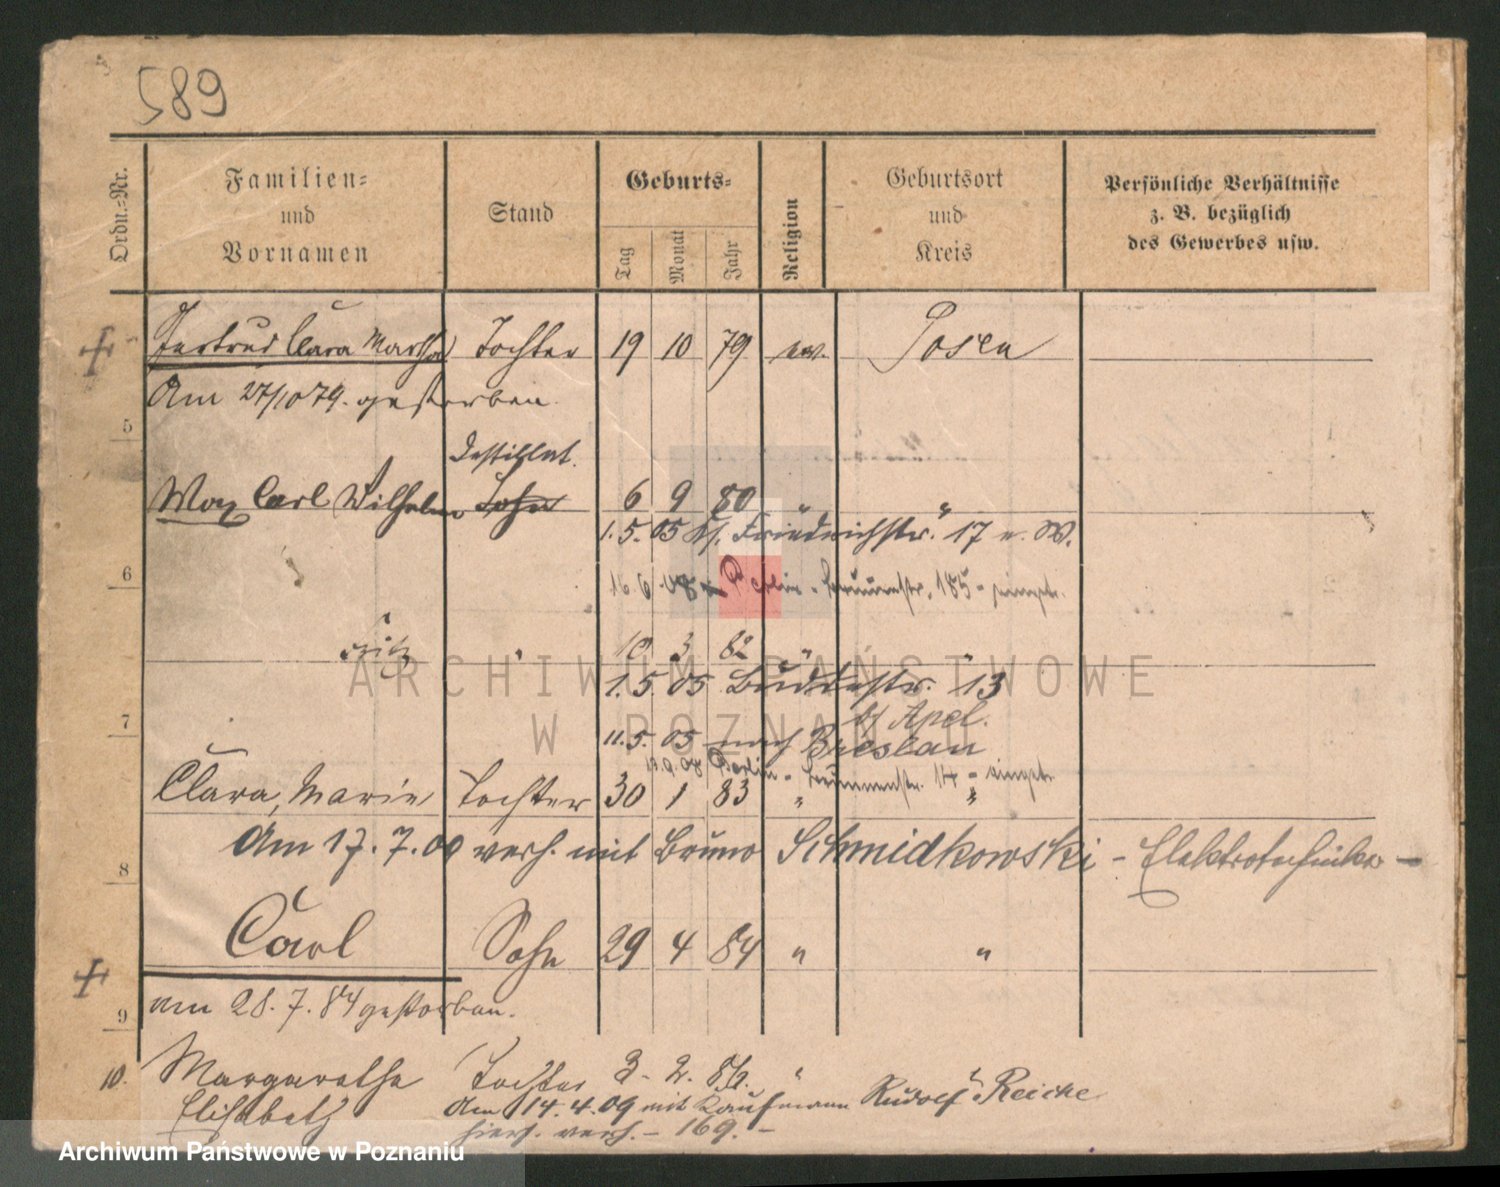 589
Ordn.-Nr.
Familien-
und
Vornamen
Stand
Geburts-
Tag
Monat
Jahr
Religion
Geburtsort
und
Kreis
Persönliche Verhältnisse
z. B. bezüglich
des Gewerbes usw.
Gertrud Clara Martha Tochter 19 10 79 ev. Posen
Am 27/10 79. gestorben.
5
Destillat.
Max Carl Wilhelm Sohn 6 9 80 " "
1. 5. 05 Friedrichstr. 17 n. W.
6
16. 6. 08 Berlin - Brunnenstr. 185 -
Fritz " 10 3 82 " "
1. 5. 05 Buddestr. 13
b/ Apel.
7
11. 5. 05 nach Breslau
Berlin - Brunnenstr. 14 -
Clara, Marie Tochter 30 1 83 " "
Am 17. 7. 00 verh. mit Bruno Schmidkowski - Elektrotechniker -
8
Carl Sohn 29 4 84 " "
am 28. 7. 84 gestorben.
9
10. Margarethe Tochter 3. 2. 86. " "
Elisabeth Am 14. 4. 09 mit Kaufmann Rudolf Reiche
hiers. verh. - 169. -
ARCHIWUM PAŃSTWOWE
W POZNANIU
Archiwum Państwowe w Poznaniu